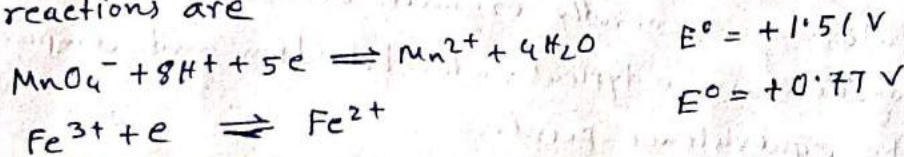 reactions are
MnO₄⁻ + 8H⁺ + 5e ⇌ Mn²⁺ + 4H₂O E° = +1.51 V
Fe³⁺ + e ⇌ Fe²⁺ E° = +0.77 V